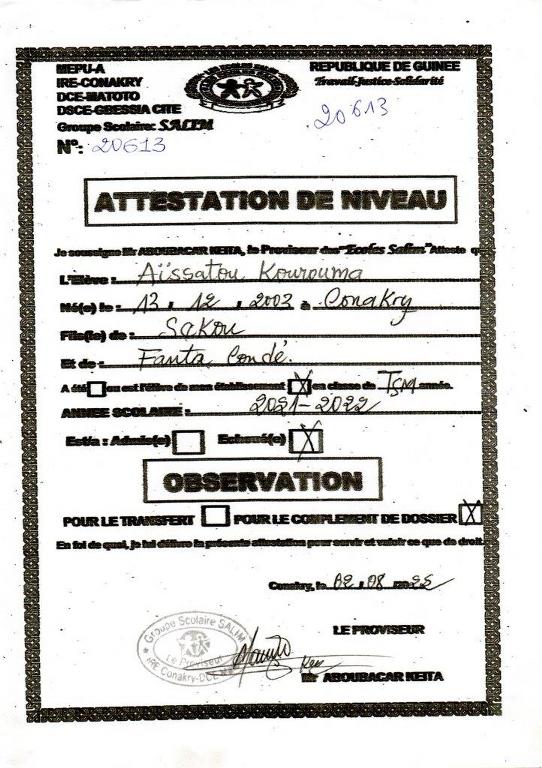 MEPU-A
IRE-CONAKRY
DCE-MATOTO
DSCE-GBESSIA CITE
Groupe Scolaire: SALIM
N°: 20613
REPUBLIQUE DE GUINEE
Travail-Justice-Solidarité
20613
ATTESTATION DE NIVEAU
Je soussigné Mr ABOUBACAR KEITA, le Proviseur des "Ecoles Salim" Atteste q
L'Elève : Aïssatou Kourouma
Né(e) le : 13 . 12 . 2003 à Conakry
Fils(le) de : Sakou
Et de : Fanta Condé.
A été ou est l'élève de mon établissement X en classe de TSM année.
ANNEE SCOLAIRE : 2021-2022
Est/a : Admis(e) Echoué(e) X
OBSERVATION
POUR LE TRANSFERT POUR LE COMPLEMENT DE DOSSIER X
En foi de quoi, je lui délivre la présente attestation pour servir et valoir ce que de droit.
Conakry, le 02 . 08 . 2025
LE PROVISEUR
Groupe Scolaire SALIM
Le Proviseur
IRE Conakry-DCE
Mr ABOUBACAR KEITA